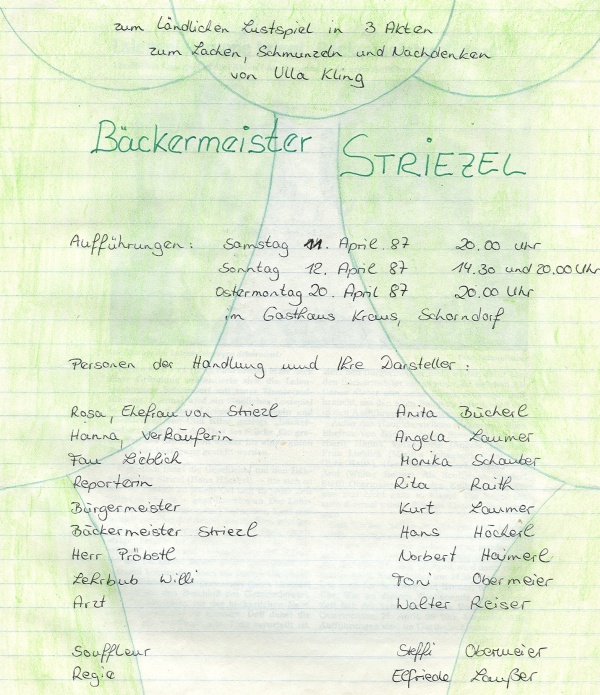 zum Ländlichen Lustspiel in 3 Akten
zum Lachen, Schmunzeln und Nachdenken
von Ulla Kling
Bäckermeister STRIEZEL
Aufführungen: Samstag 11. April. 87 20.00 Uhr
Sonntag 12. April 87 14.30 und 20.00 Uhr
Ostermontag 20. April 87 20.00 Uhr
im Gasthaus Kraus, Schorndorf
Personen der Handlung und Ihre Darsteller:
Rosa, Ehefrau von Striezl Anita Bücherl
Hanna, Verkäuferin Angela Laumer
Frau Lieblich Monika Schauber
Reporterin Rita Raith
Bürgermeister Kurt Laumer
Bäckermeister Striezl Hans Höcherl
Herr Pröbstl Norbert Haimerl
Lehrbub Willi Toni Obermeier
Arzt Walter Reiser
Souffleur Steffi Obermeier
Regie Elfriede Laußer